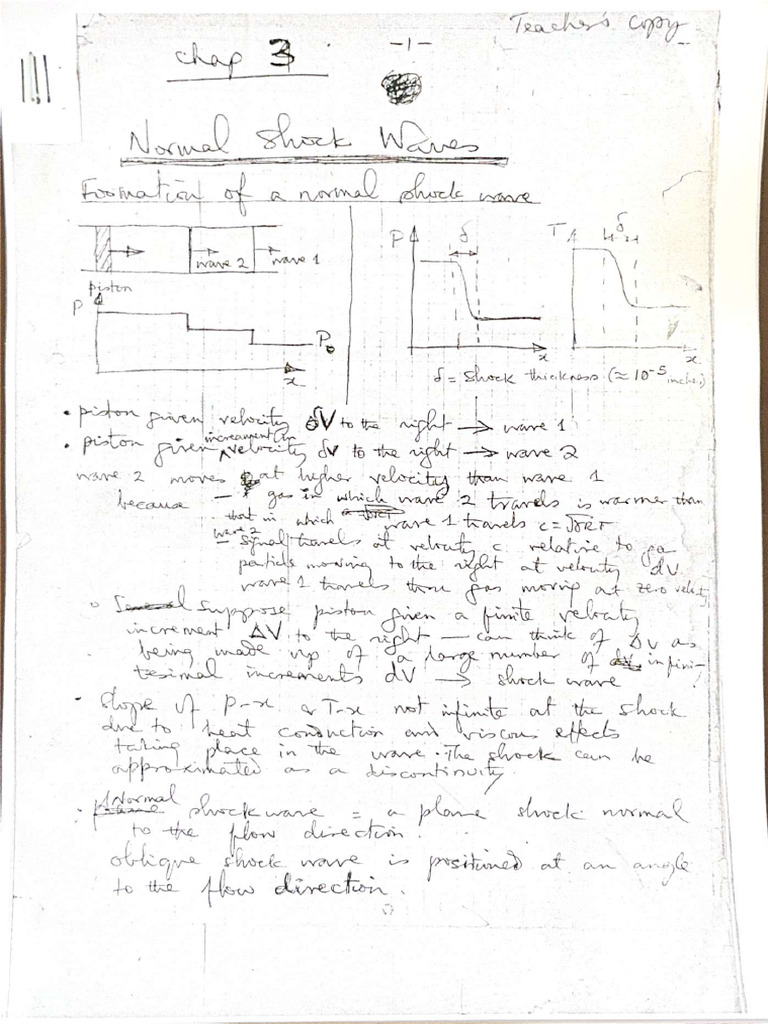 Teacher's copy
Chap 3
-1-
Normal Shock Waves
Formation of a normal shock wave
wave 2
wave 1
piston
P
P₀
x
P
δ
x
T
δ
x
δ = shock thickness (≈ 10⁻⁵ inches)
• piston given velocity δV to the right → wave 1
• piston given increament in velocity δv to the right → wave 2
wave 2 moves at higher velocity than wave 1
because — gas in which wave 2 travels is warmer than
that in which wave 1 travels c = √γRT
wave 2
— signal travels at velocity c relative to gas
particls moving to the right at velocity dV
wave 1 travels thru gas moving at zero velocity
Suppose piston given a finite velocity
increment ΔV to the right — can think of ΔV as
being made up of a large number of infini-
tesimal increments dV → shock wave
• Slope of P-x or T-x not infinite at the shock
due to heat conduction and viscous effects
taking place in the wave. The shock can be
approximated as a discontinuity.
• A Normal shockwave = a plane shock normal
to the flow direction.
oblique shock wave is positioned at an angle
to the flow direction.